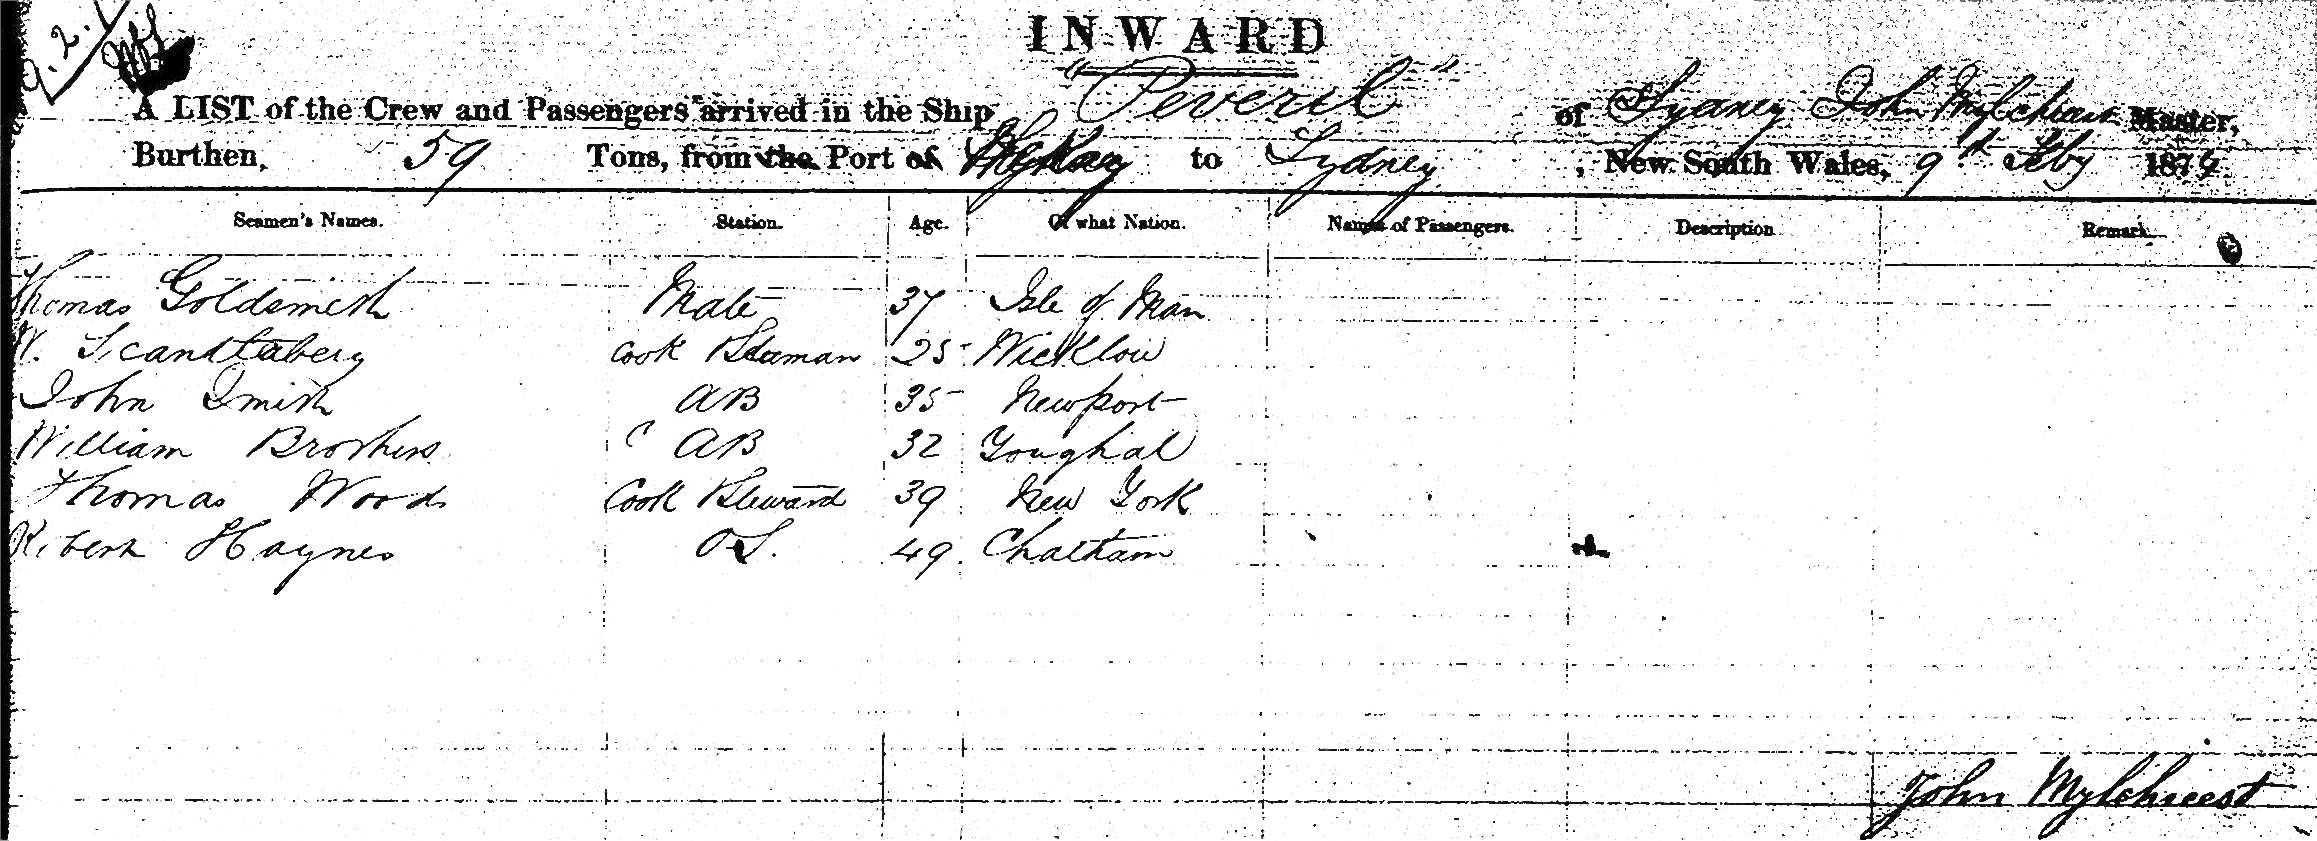 9.2.
INWARD
A LIST of the Crew and Passengers arrived in the Ship "Peveril" of Sydney John Mylchreest Master,
Burthen, 59 Tons, from the Port of to Sydney, New South Wales, 9th Feby 1874
Seamen's Names. Station. Age. Of what Nation. Names of Passengers. Description Remark
Thomas Goldsmith Mate 37 Isle of Man
W. Cook Seaman 25 Wicklow
John Smith AB 35 Newport
William Brothers AB 32 Youghal
Thomas Woods Cook Steward 39 New York
Robert Haynes OS. 49. Chatham
John Mylchreest